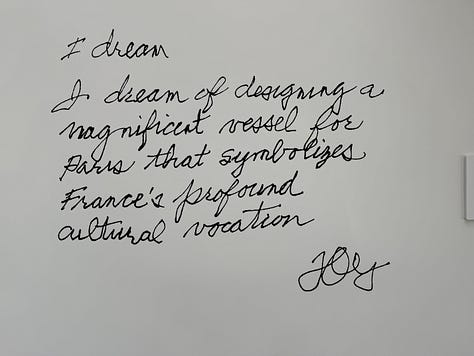 I dream
I dream of designing a
magnificent vessel for
Paris that symbolizes
France's profound
cultural vocation
FOG